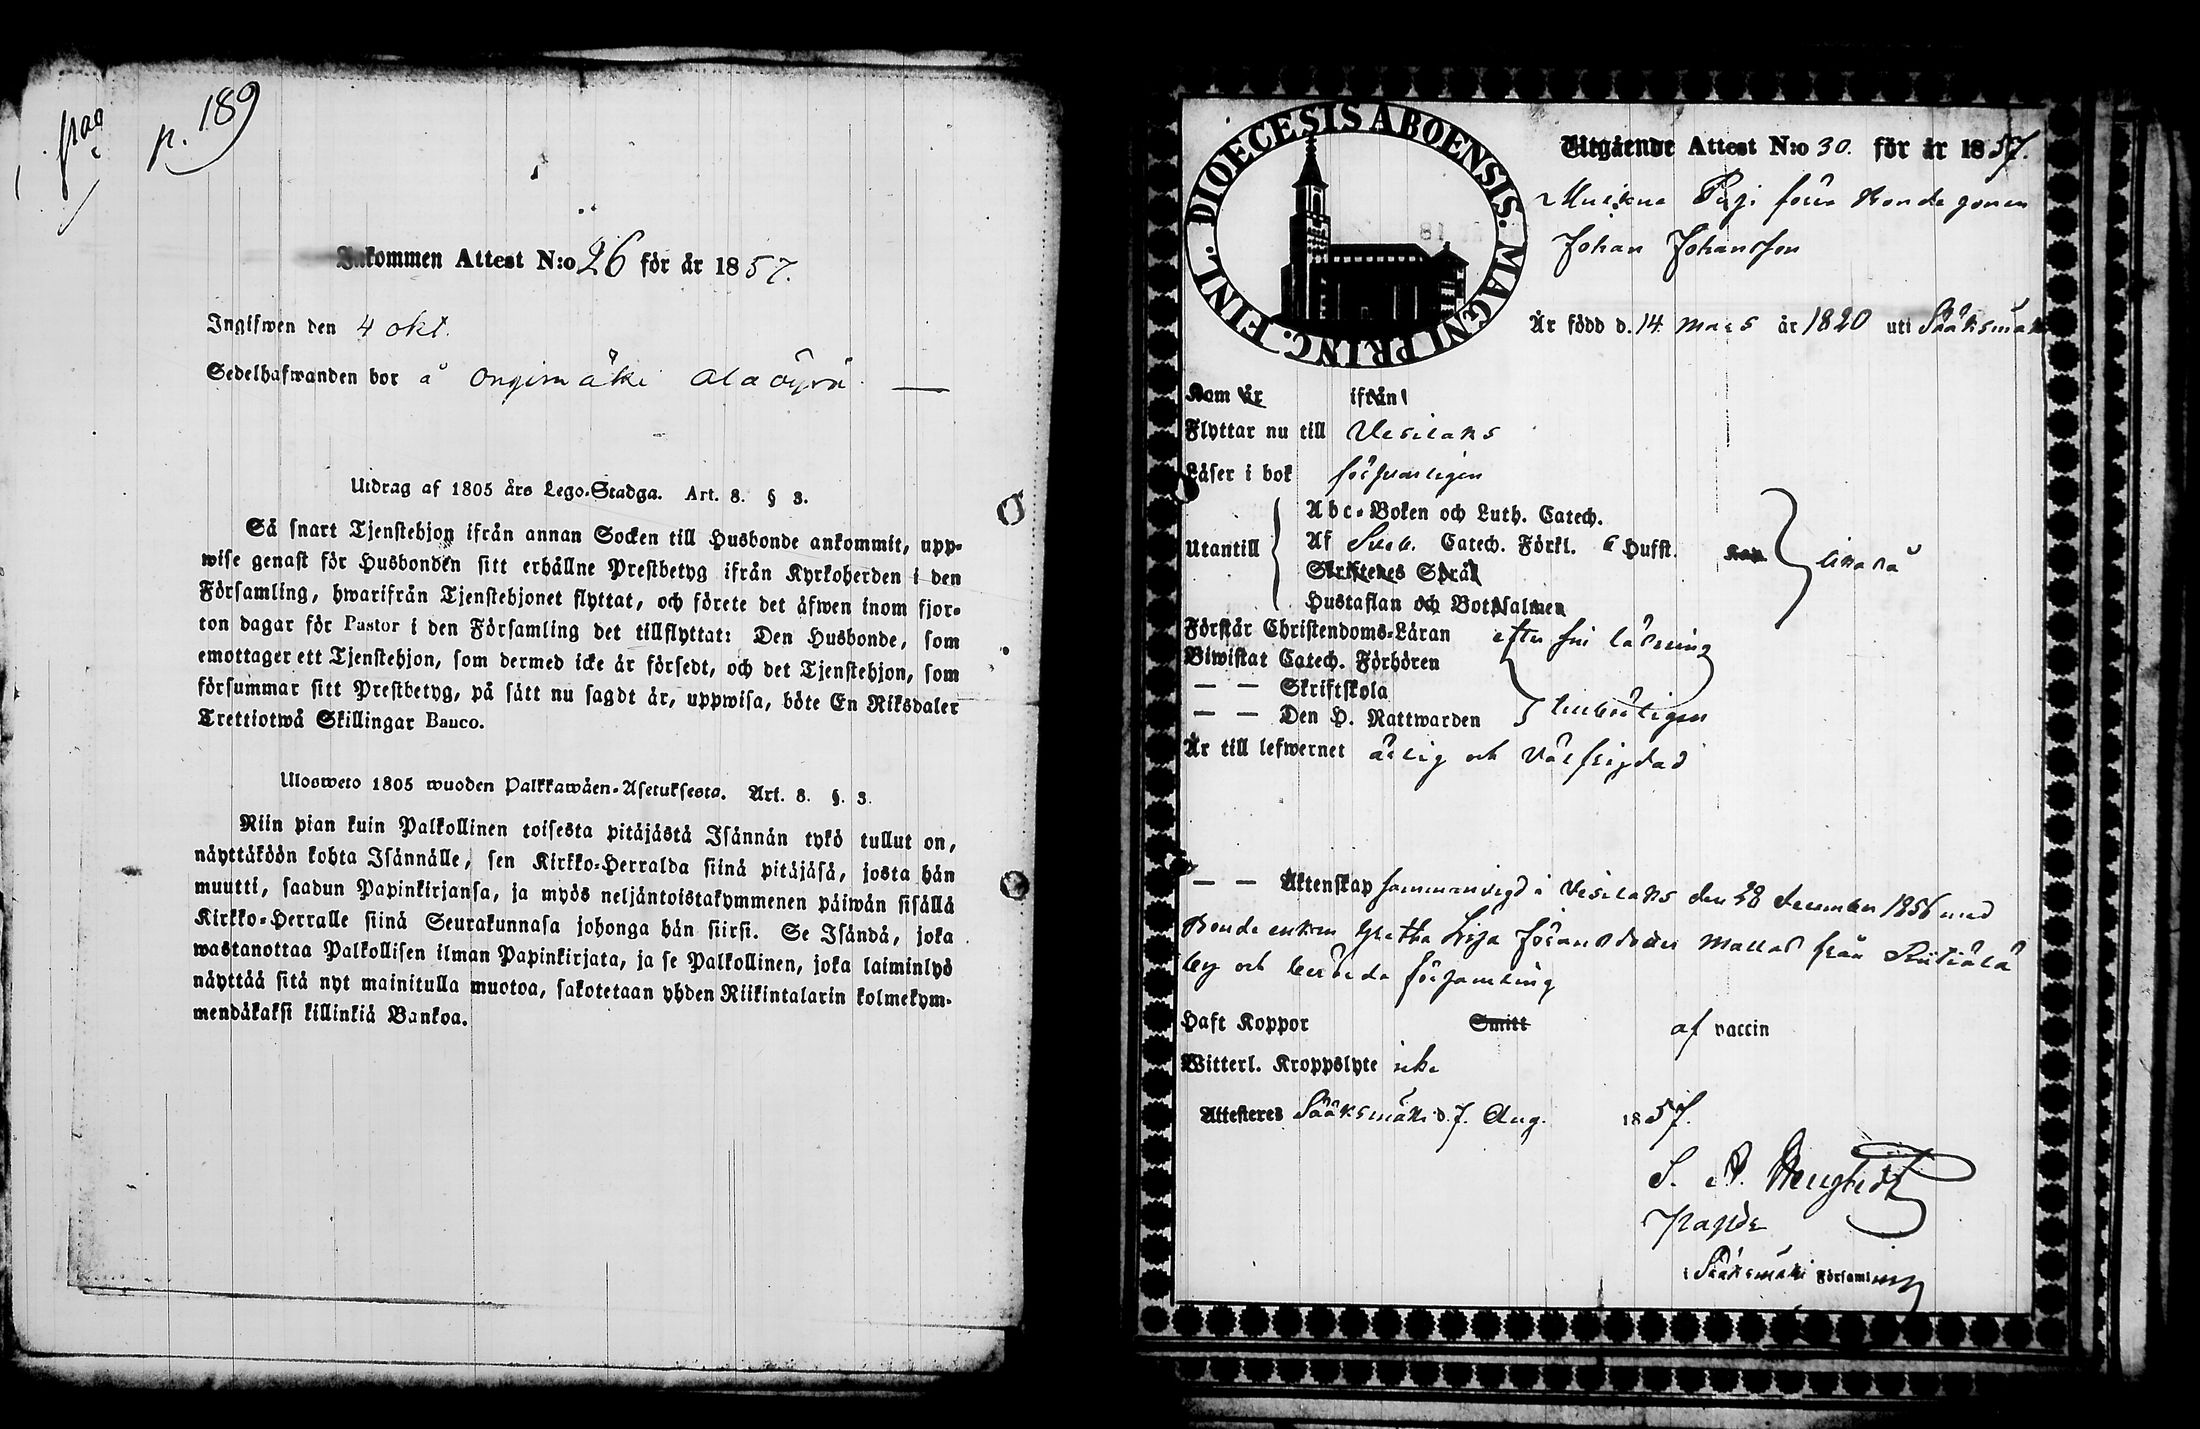 p. 189
Inkommen Attest N:o 26 för år 1857.
Ingifwen den 4 okt.
Sedelhafwanden bor å Ongimäki alaöyrä
Utdrag af 1805 års Lego-Stadga. Art. 8. § 3.
Så snart Tjenstehjon ifrån annan Socken till Husbonde ankommit, upp-
wise genast för Husbonden sitt erhållne Prestbetyg ifrån Kyrkoherden i den
Församling, hwarifrån Tjenstehjonet flyttat, och förete det äfwen inom fjor-
ton dagar för Pastor i den Församling det tillflyttat: Den Husbonde, som
emottager ett Tjenstehjon, som dermed icke är försedt, och det Tjenstehjon, som
försummar sitt Prestbetyg, på sätt nu sagdt är, uppwisa, böte En Riksdaler
Trettiotwå Skillingar Banco.
Ulosweto 1805 wuoden Palkkawäen-Asetuksesta. Art. 8. §. 3.
Niin pian kuin Palkollinen toisesta pitäjästä Isännän tykö tullut on,
näyttäköön kohta Isännälle, sen Kirkko-Herralda siinä pitäjäsä, josta hän
muutti, saadun Papinkirjansa, ja myös neljäntoistakymmenen päiwän sisällä
Kirkko-Herralle siinä Seurakunnasa johonga hän siirsi. Se Isändä, joka
wastanottaa Palkollisen ilman Papinkirjata, ja se Palkollinen, joka laiminlyö
näyttää sitä nyt mainitulla muotoa, sakotetaan yhden Riikintalarin kolmekym-
mendäkaksi killinkiä Bankoa.
DIOECESIS ABOENSIS. MAGNI PRINC. FINL.
Utgående Attest N:o 30. för år 1857.
Johan Johansson
Är född d. 14 mars år 1820 uti Sääksmäki
Kom är ifrån
Flyttar nu till Vesilaks
Läser i bok försvarligen
Utantill
Abc-Boken och Luth. Catech.
Af Sveb. Catech. Förkl. 6 Hufst.
Skriftenes Språk
Hustaflan och Botpsalmen
lika så
Förstår Christendoms-Läran efter sin läsning
Biwistat Catech. Förhören
— — Skriftskola
— — Den H. Nattwarden
Är till lefwernet ärlig och välfrejdad
— — Äktenskap sammanvigd i Vesilaks den 28 december 1856 med
Bonde enkan Gretha Lisa Johansdotter Mattas från
by och berörde församling
Haft Koppor Smitt af vaccin
Witterl. Kroppslyte icke
Attesteres Sääksmäki d. 7. Aug. 1857.
i Sääksmäki Församling